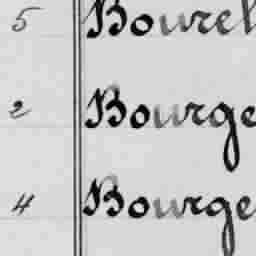 5 Bourel
2 Bourge
4 Bourge